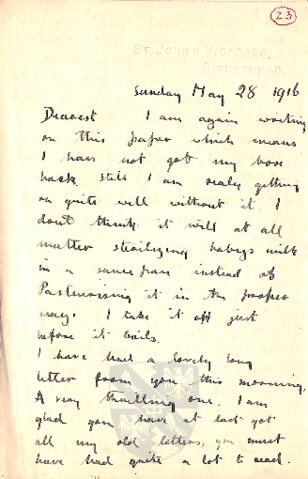 23
ST. JOHN'S VICARAGE,
BIRKENHEAD.
Sunday May 28 1916
Dearest I am again writing
on this paper which means
I have not got my box
back still I am really getting
on quite well without it. I
dont think it will at all
matter sterilizing babys milk
in a saucepan instead of
Pasteurising it in the proper
way. I take it off just
before it boils.
I have had a lovely long
letter from you this morning,
A very thrilling one. I am
glad you have at last got
all my old letters, you must
have had quite a lot to read.